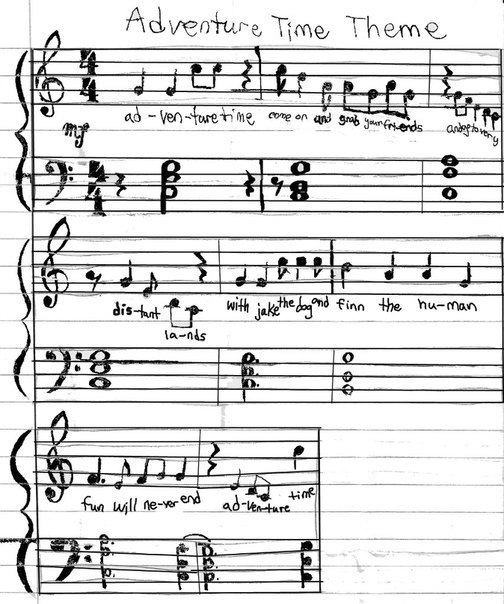 Adventure Time Theme
4 4
ad-ven-ture time come on and grab your friends and go to very
mp
4 4
dis-tant la-nds with jake the dog and finn the hu-man
fun will ne-ver end ad-ven-ture time